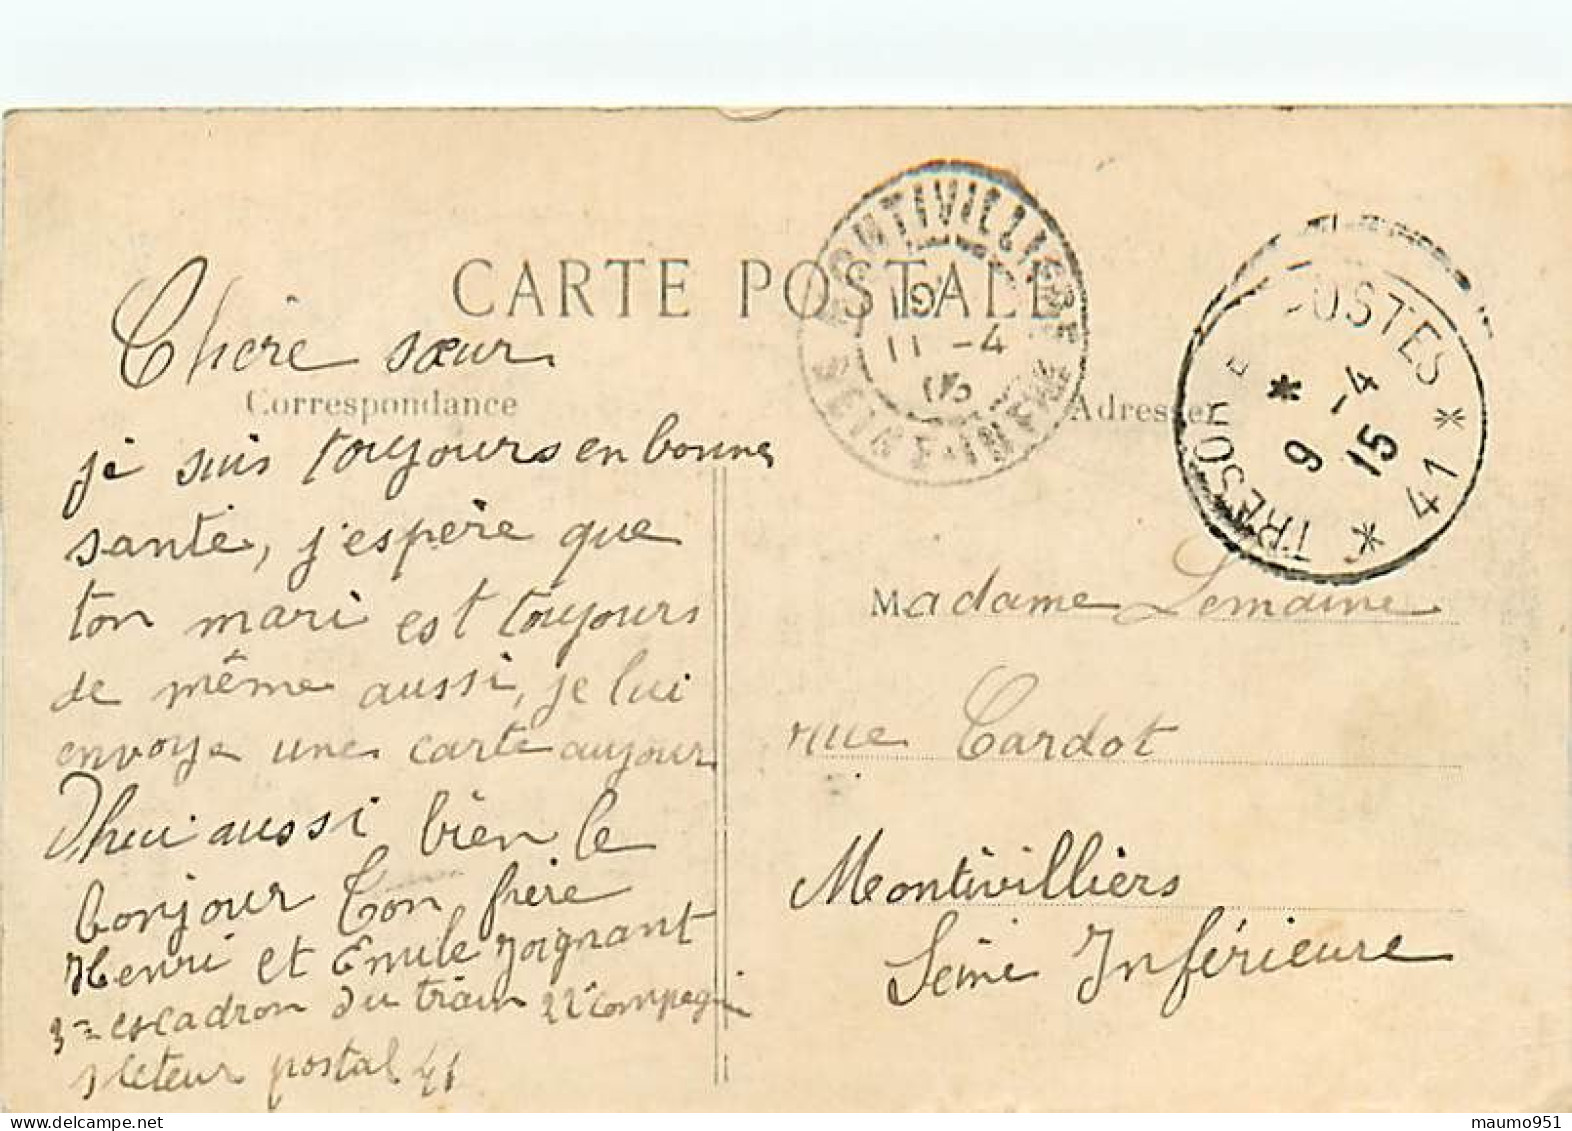 CARTE POSTALE
Correspondance
Adresse
MONTIVILLIERS
19
11 -4
SEINE-INFRE
TRESOR E POSTES
* 9 -4 15 *
* 41
Chère sœur
je suis toujours en bonne
santé, j'espère que
ton mari est toujours
de même aussi, je lui
envoye une carte aujour
d'hui aussi bien le
bonjour Ton frère
Henri et Emile Joignant
3me escadron du train 22e compagnie
secteur postal 41
Madame Lemaine
rue Cardot
Montivilliers
Seine Inférieure
maumo951